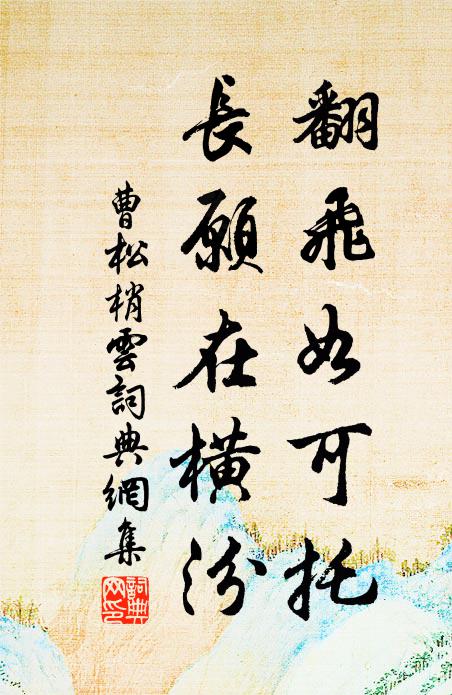 翻飛如可托
長願在橫汾
曹松梢雲詞典網集
詞典網印